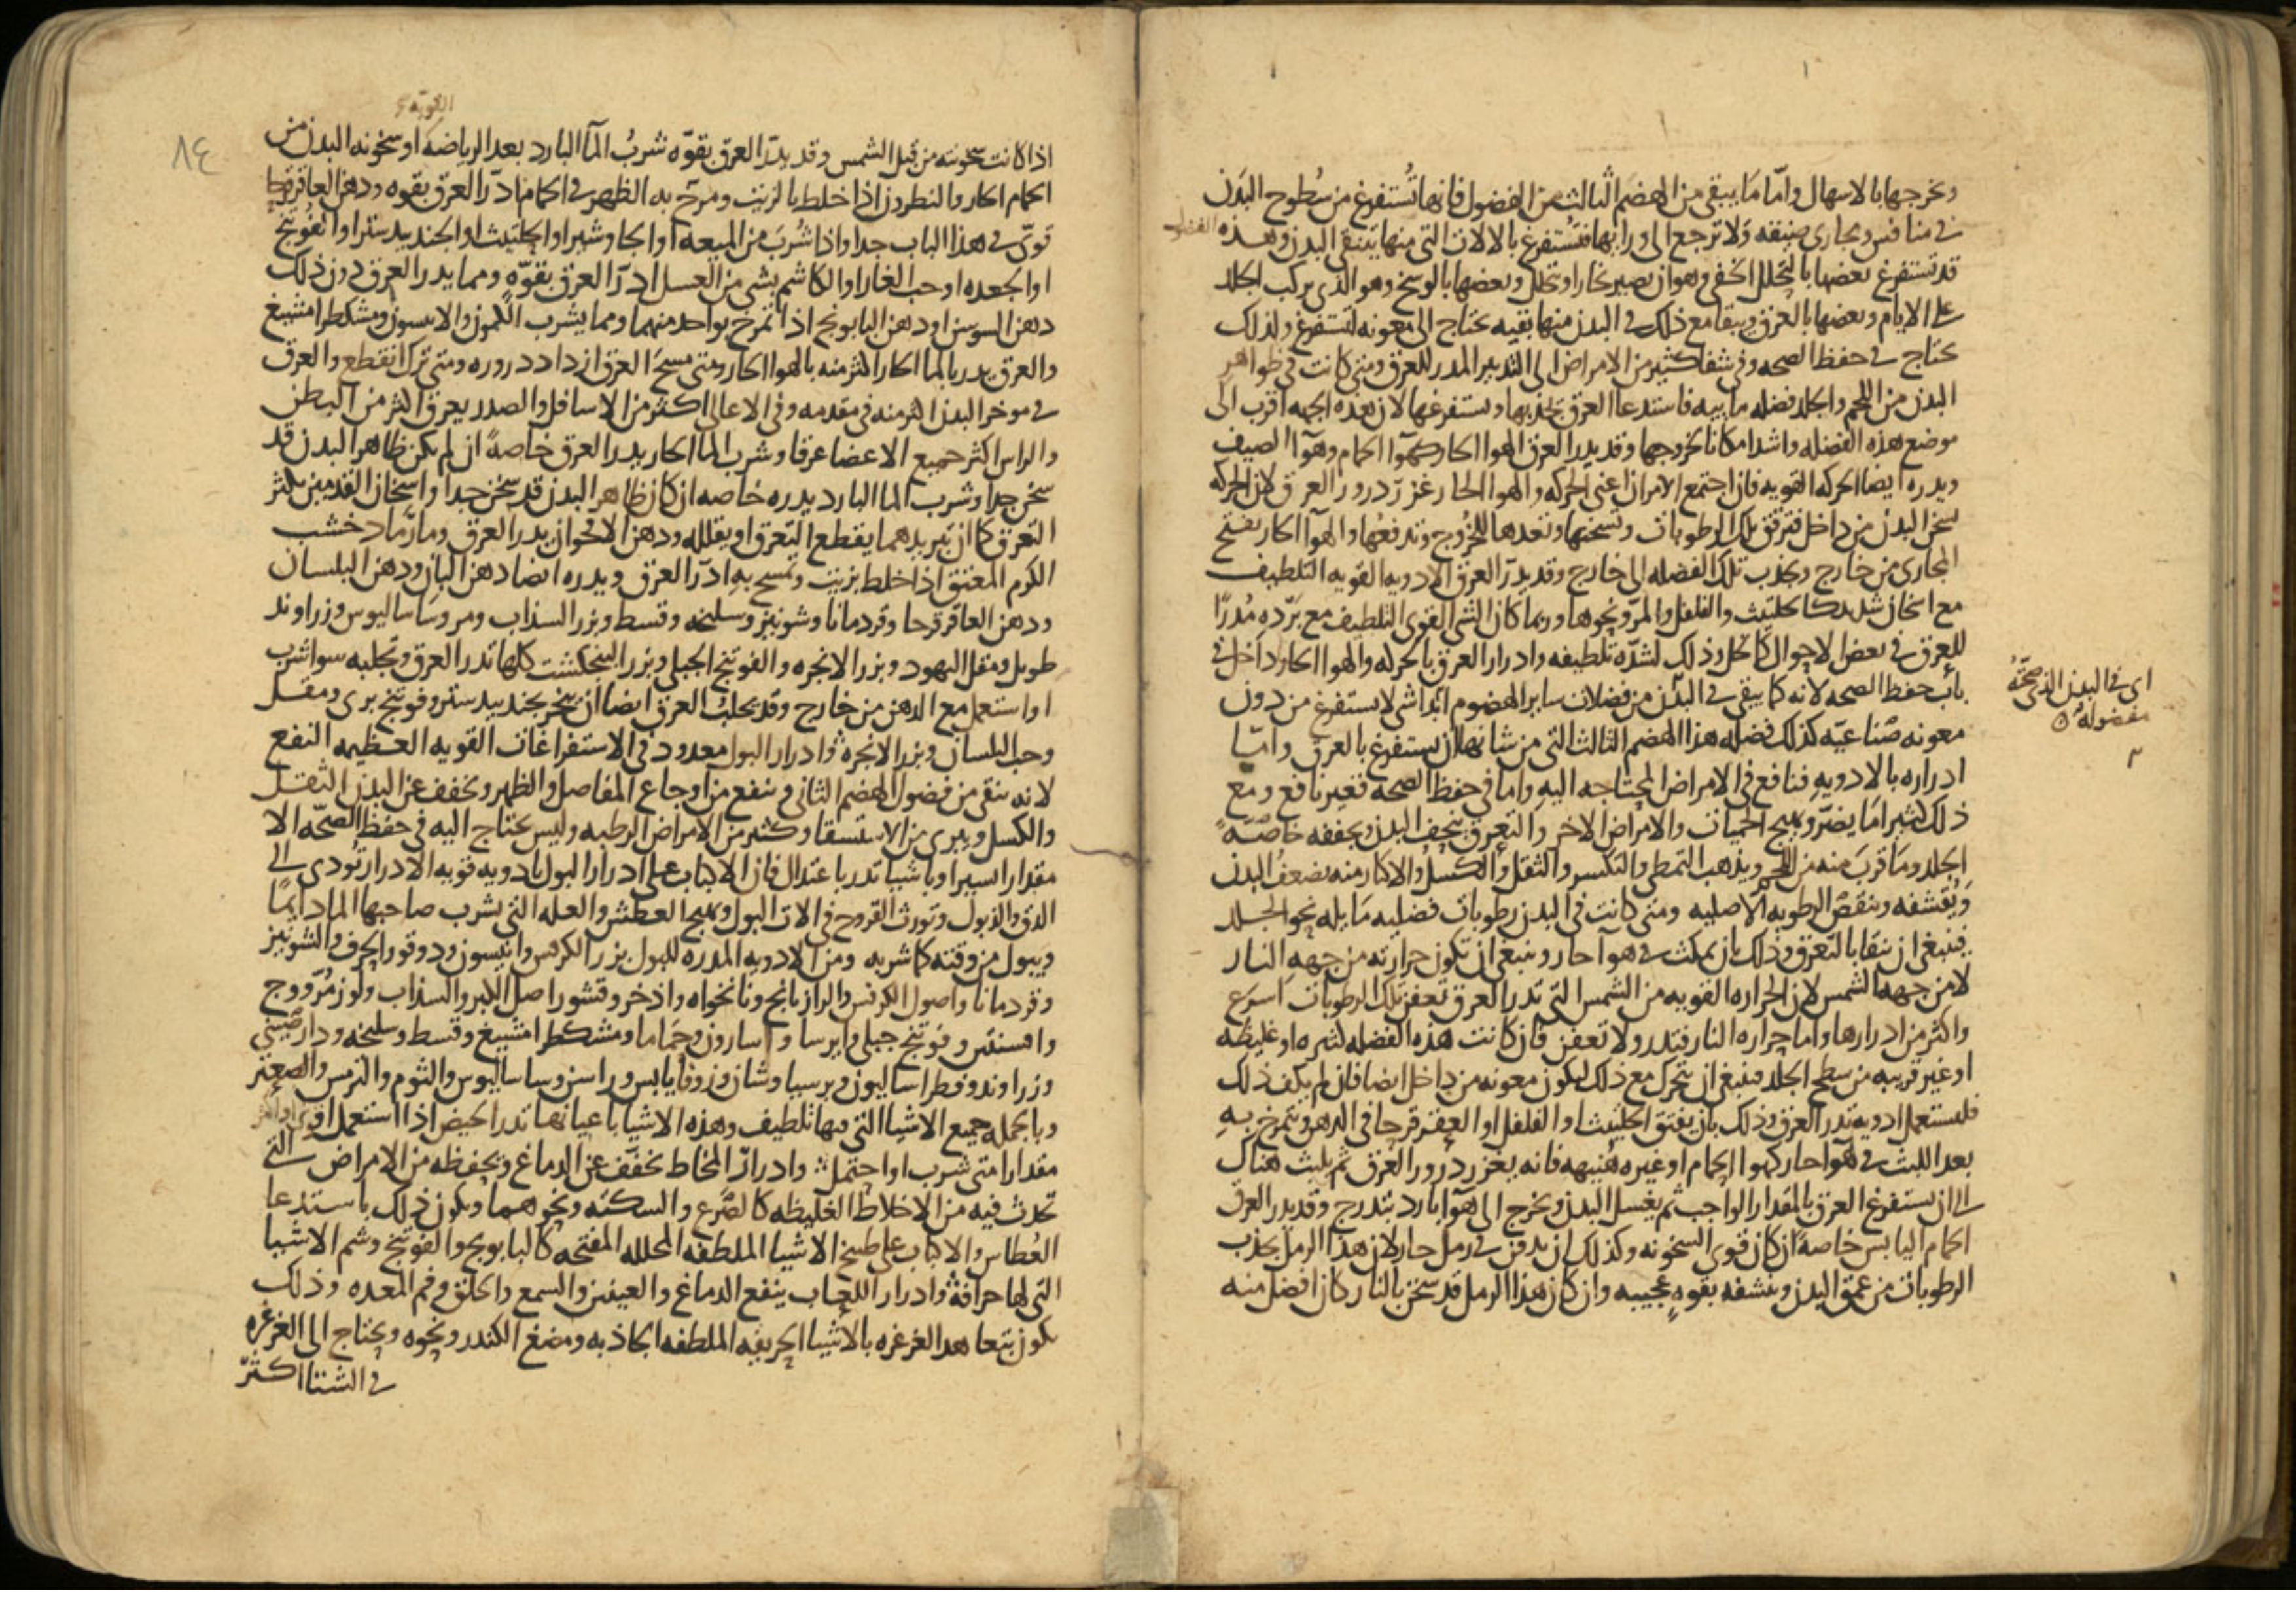 وتخرجها بالاسهال واما ما يبقى من الهضم الثالث من الفضول فانها تستفرغ من سطوح البدن
في منافس ومجاري ضيقه ولا ترجع الى ورائها فتستفرغ بالالات التي منها يتنقى البدن وهذه الفضول
قد تستفرغ بعضها بالتحلل الخفي وهو ان يصير بخارا وتتحلل وبعضها بالوسخ وهو الذي يركب الجلد
على الايام وبعضها بالعرق ويبقا مع ذلك في البدن منها بقيه تحتاج الى معونه لتستفرغ ولذلك
تحتاج في حفظ الصحه وفي شفا كثير من الامراض الى التدبير المدر للعرق ومتى كانت في ظواهر
البدن من اللحم والجلد فضله مائيه فاستدعا العرق يجذبها ويستفرغها لان هذه الجهه اقرب الى
موضع هذه الفضله واشد امكانا لخروجها وقد يدر العرق الهوا الحار كهوا الحمام وهوا الصيف
ويدره ايضا الحركه القويه فان اجتمع الامران اعني الحركه والهوا الحار غزر درور العرق لان الحركه
تسخن البدن من داخل فترقق تلك الرطوبات وتسخنها وتعدها للخروج وتدفعها والهوا الحار يفتح
المجاري من خارج ويجذب تلك الفضله الى خارج وقد يدر العرق الادويه القويه التلطيف
مع اسخان شديد كالحلتيت والفلفل والمر ونحوها وربما كان الشي القوي التلطيف مع برده مدرا
للعرق في بعض الاحوال كالخل وذلك لشدة تلطيفه وادرار العرق بالحركه والهوا الحار داخل في
باب حفظ الصحه لانه كما يبقى في البدن من فضلات ساير الهضوم ابدا شي لا يستفرغ من دون
معونه صناعيه كذلك فضله هذا الهضم الثالث التي من شانها ان يستفرغ بالعرق واما
ادراره بالادويه فنافع في الامراض المحتاجه اليه واما في حفظ الصحه فغير نافع ومع
ذلك كثيرا ما يضر ويهيج الحميات والامراض الاخر والتعرق ينحف البدن ويجففه خاصة
الجلد وما قرب منه من اللحم ويذهب التمطي والتكسر والثقل والكسل والاكثار منه يضعف البدن
ويقشفه وينقص الرطوبه الاصليه ومتى كانت في البدن رطوبات فضليه مايله نحو الجلد
فينبغي ان ينقا بالتعرق وذلك بان يمكث في هوا حار وينبغي ان تكون حرارته من جهه النار
لا من جهه الشمس لان الحراره القويه من الشمس التي تدر العرق تعفن تلك الرطوبات اسرع
واكثر من ادرارها واما حراره النار فتدر ولا تعفن فان كانت هذه الفضله كثيره او غليظه
او غير قريبه من سطح الجلد فينبغي ان يتحرك مع ذلك ليكون معونه من داخل ايضا فان لم يكف ذلك
فليستعمل ادويه تدر العرق وذلك بان يفتق الحلتيت او الفلفل او العقرقرحا في الدهن ويتمرخ به
بعد اللبث في هوا حار كهوا الحمام او غيره هنيهه فانه يغزر درور العرق ثم يلبث هناك
الى ان يستفرغ العرق بالمقدار الواجب ثم يغسل البدن ويخرج الى هوا بارد بتدرج وقد يدر العرق
الحمام اليابس خاصة ان كان قوي السخونه وكذلك ان يدفن في رمل حار لان هذا الرمل يجذب
الرطوبات من عمق البدن وينشفه بقوه عجيبه وان كان هذا الرمل قد سخن بالنار كان افضل منه
اي في البدن الذي صحته
مفضوله
٨٤
اذا كانت سخونته من قبل الشمس وقد يدر العرق بقوه شرب الما البارد بعد الرياضه او سخونه البدن من
الحمام الحار والنطرون اذا خلط بالزيت ومرخ به الظهر في الحمام ادر العرق بقوه ودهن العاقرقرحا
قوي في هذا الباب جدا واذا شرب من الميعه او الجاوشير او الحلتيت او الجندبيدستر او الفوتنج
او الجعده او حب الغار او الكاشم بشي من العسل ادر العرق بقوه ومما يدر العرق دون ذلك
دهن السوسن او دهن البابونج اذا تمرخ بواحد منهما ومما يشرب الكمون والانيسون ومشكطرامشيغ
والعرق يدر بالما الحار اكثر منه بالهوا الحار ومتى مسح العرق ازداد دروره ومتى ترك انقطع والعرق
في موخر البدن اكثر منه في مقدمه وفي الاعالي اكثر من الاسافل والصدر يعرق اكثر من البطن
والراس اكثر جميع الاعضا عرقا وشرب الما الحار يدر العرق خاصة ان لم يكن ظاهر البدن قد
سخن جدا وشرب الما البارد يدره خاصه ان كان ظاهر البدن قد سخن جدا واسخان القدمين يكثر
التعرق كما ان تبريدهما يقطع التعرق او يقلله ودهن الاقحوان يدر العرق ورماد خشب
الكرم المعتق اذا خلط بزيت وتمسح به ادر العرق ويدره ايضا دهن البان ودهن البلسان
ودهن العاقرقرحا وقردمانا وشونيز وسليخه وقسط وبزر السذاب ومر وساساليوس وزراوند
طويل ومقل اليهود وبزر الانجره والفوتنج الجبلي وبزر البنجنكشت كلها تدر العرق وتجلبه سوا شرب
او استعمل مع الدهن من خارج وقد يجلب العرق ايضا ان يبخر بجندبيدستر وفوتنج بري ومقل
وحب البلسان وبزر الانجره وادرار البول معدود في الاستفراغات القويه العظيمه النفع
لانه ينقي من فضول الهضم الثاني وينفع من اوجاع المفاصل والظهر ويخفف عن البدن الثقل
والكسل ويبرى من الاستسقا وكثير من الامراض الرطبه وليس يحتاج اليه في حفظ الصحه الا
مقدارا يسيرا وباشيا تدر باعتدال فان الاكباب على ادرار البول بادويه قويه الادرار تودي الى
الدق والذبول وتورث القروح في الات البول ويهيج العطش والعله التي يشرب صاحبها الما دايما
ويبول من وقته كما شربه ومن الادويه المدره للبول بزر الكرفس وانيسون ودوقو والحرف والشونيز
وقردمانا واصول الكرفس والرازيانج ونانخواه واذخر وقشور اصل الكبر والسذاب ولوز مر ووج
وافسنتين وفوتنج جبلي وايرسا واسارون وحماما ومشكطرامشيغ وقسط وسليخه ودارصيني
وزراوند وفطراساليون وبرسياوشان وزوفا يابس وراسن وساساليوس والثوم والترمس والصعتر
وبالجمله جميع الاشيا التي فيها تلطيف وهذه الاشيا باعيانها تدر الحيض اذا استعمل اقوى او اكثر
مقدارا متى شرب او احتمل وادرار المخاط يخفف عن الدماغ ويحفظه من الامراض التي
تحدث فيه من الاخلاط الغليظه كالصرع والسكته ونحوهما ويكون ذلك باستدعا
العطاس والاكباب على طبيخ الاشيا الملطفه المحلله المفتحه كالبابونج والفوتنج وشم الاشيا
التي لها حرافة وادرار اللعاب ينفع الدماغ والعينين والسمع والحلق وفم المعده وذلك
يكون بتعاهد الغرغره بالاشيا الحريفه الملطفه الجاذبه ومضغ الكندر ونحوه ويحتاج الى الغرغره
في الشتا اكثر